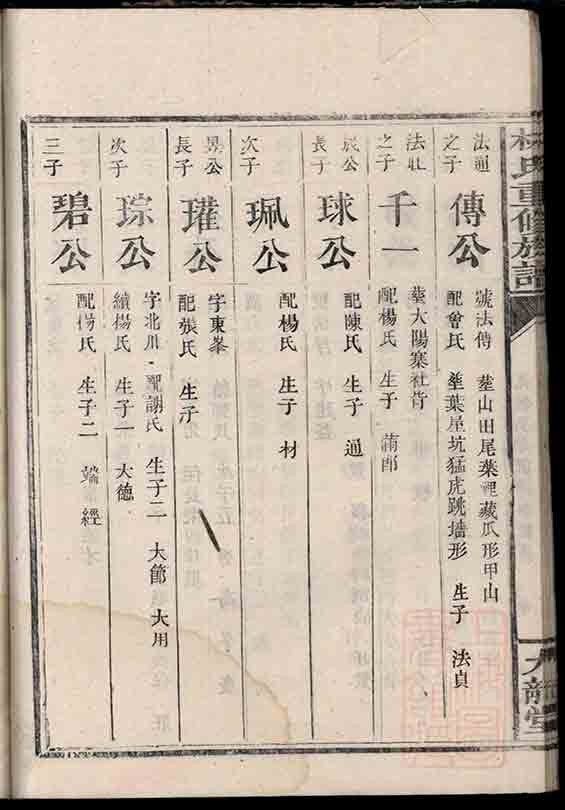 林氏重修族譜
九龍堂
法通
之子
傳公
號法傳 塟山田尾葉裡藏瓜形甲山
配曾氏 塟葉屋坑猛虎跳墙形 生子 法貞
法壯
之子
千一
塟大陽寨社背
配楊氏 生子 蒲郎
成公
長子
球公
配陳氏 生子 通
次子
珮公
配楊氏 生子 材
昺公
長子
瓘公
字東峯
配張氏 生子
次子
琮公
字北川 配謝氏 生子二 大節 大用
續楊氏 生子一 大德
三子
碧公
配楊氏 生子二 端 經